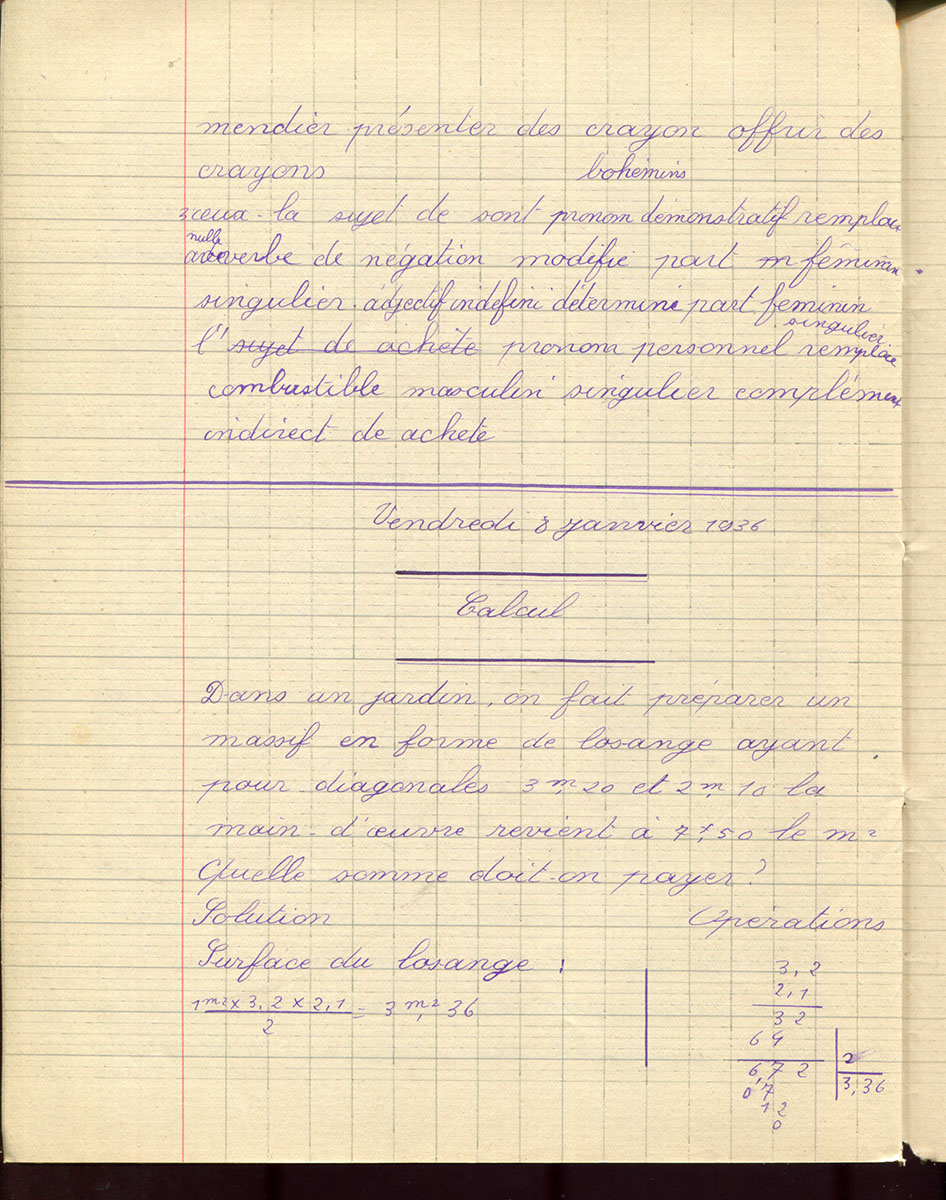 mendier présenter des crayon offrir des
crayons bohémins
3 ceux-la sujet de sont pronom démonstratif remplace
nulle adverbe de négation modifie part m féminin
singulier. adjectif indefini détermine part feminin
singulier.
l' sujet de achète pronom personnel remplace
combustible masculin singulier complément
indirect de achete
Vendredi 8 janvier 1936
Calcul
Dans un jardin, on fait préparer un
massif en forme de losange ayant
pour diagonales 3m,20 et 2m,10 la
main-d'œuvre revient à 7f,50 le m²
Quelle somme doit-on payer?
Solution Opérations
Surface du losange :
1m² x 3,2 x 2,1 = 3m²,36
2
3,2
2,1
32
64
6,72 2
07 3,36
12
0